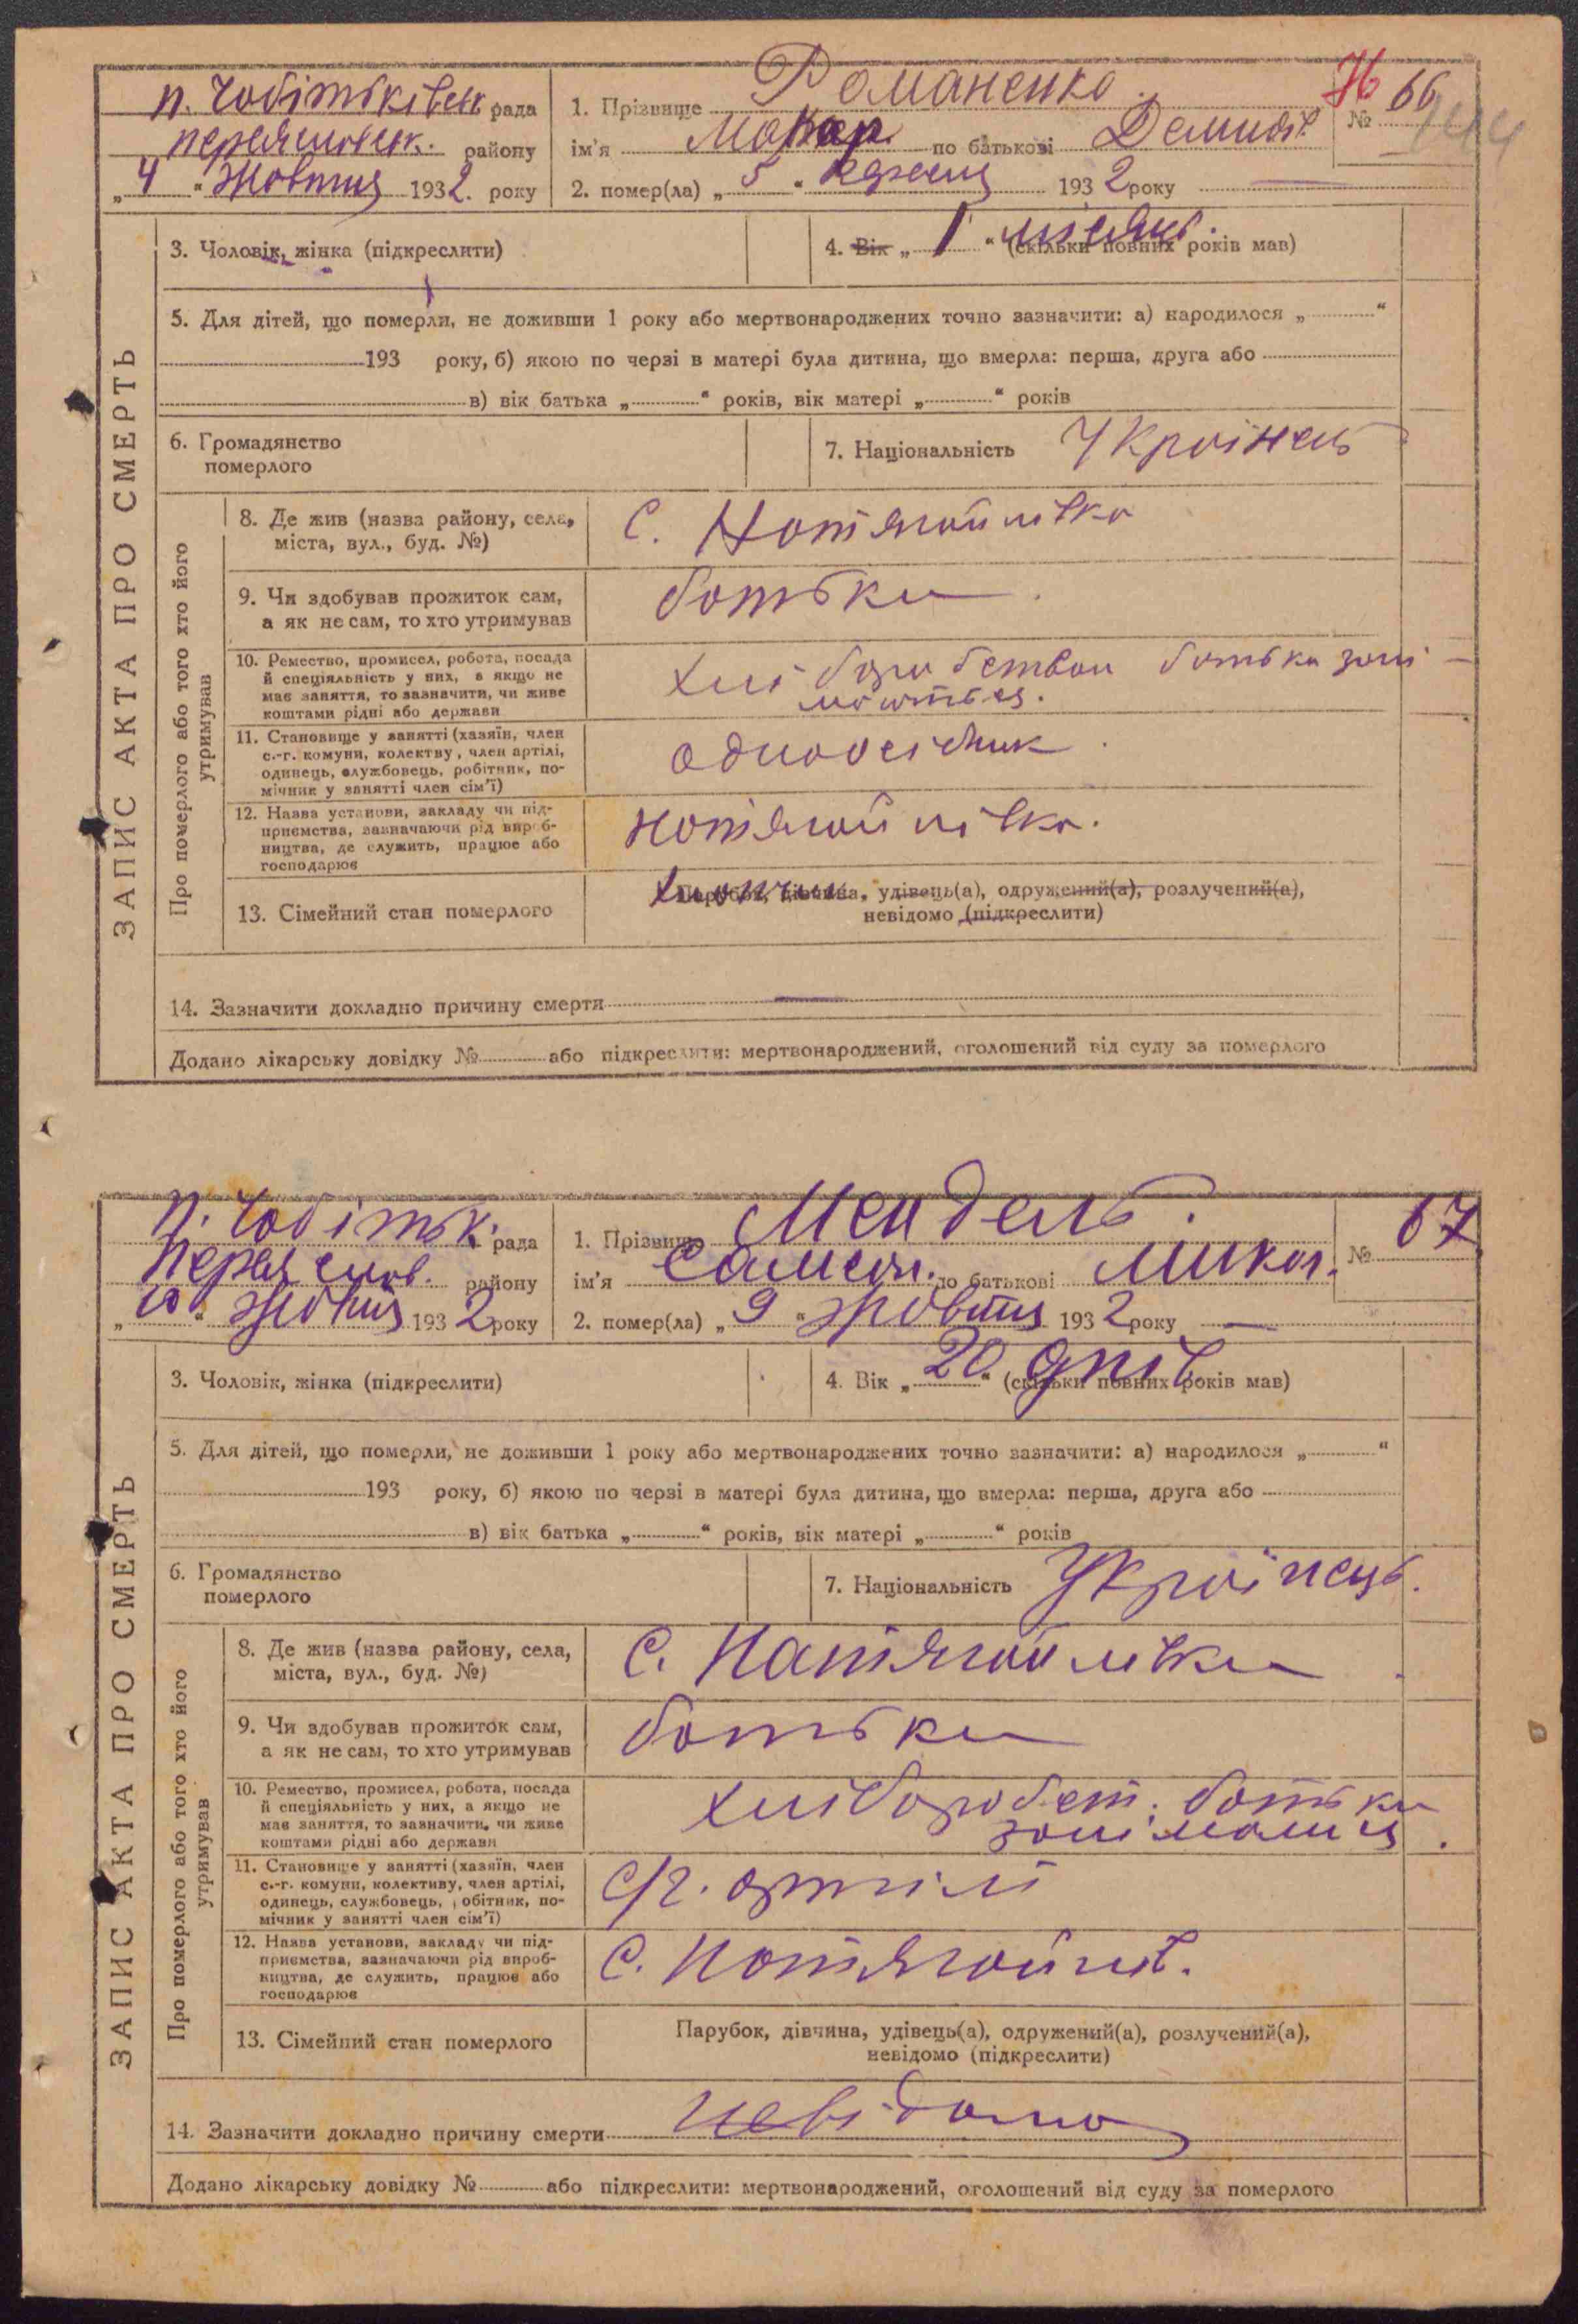 п. Чобітьківськ. рада
переяславськ. району
„4“ жовтня 1932. року
1. Прізвище Романенко.
ім'я Макар по батькові Демидів.
№ 66
144
2. помер(ла) „5“ 1932 року —
3. Чоловік, жінка (підкреслити)
4. Вік „1“ місяць. (скільки повних років мав)
5. Для дітей, що померли, не доживши 1 року або мертвонароджених точно зазначити: а) народилося „ “
193 року, б) якою по черзі в матері була дитина, що вмерла: перша, друга або
в) вік батька „ “ років, вік матері „ “ років
6. Громадянство
померлого
7. Національність Українець
ЗАПИС АКТА ПРО СМЕРТЬ
Про померлого або того хто його
утримував
8. Де жив (назва району, села,
міста, вул., буд. №)
С. Нотягайлівка
9. Чи здобував прожиток сам,
а як не сам, то хто утримував
батьки.
10. Ремество, промисел, робота, посада
й спеціяльність у них, а якщо не
має заняття, то зазначити, чи живе
коштами рідні або держави
Хліборобством батьки займаються.
11. Становище у занятті (хазяїн, член
с.-г. комуни, колектву, член артілі,
одинець, службовець, робітник, по-
мічник у занятті член сім'ї)
одноосібник.
12. Назва установи, закладу чи під-
приємства, зазначаючи рід вироб-
ництва, де служить, працює або
господарює
Нотягайлівка.
13. Сімейний стан померлого
хлопчик
Парубок, дівчина, удівець(а), одружений(а), розлучений(а),
невідомо (підкреслити)
14. Зазначити докладно причину смерти —
Додано лікарську довідку № або підкреслити: мертвонароджений, оголошений від суду за померлого
п. Чобітьк. рада
Переяслов. району
„10“ жовтня 1932 року
1. Прізвище Мендель.
ім'я Самсон. по батькові Микол.
№ 67
2. помер(ла) „9“ жовтня 1932 року —
3. Чоловік, жінка (підкреслити)
4. Вік „20“ днів (скільки повних років мав)
5. Для дітей, що померли, не доживши 1 року або мертвонароджених точно зазначити: а) народилося „ “
193 року, б) якою по черзі в матері була дитина, що вмерла: перша, друга або
в) вік батька „ “ років, вік матері „ “ років
6. Громадянство
померлого
7. Національність Українець.
ЗАПИС АКТА ПРО СМЕРТЬ
Про померлого або того хто його
утримував
8. Де жив (назва району, села,
міста, вул., буд. №)
С. Натягайлівка.
9. Чи здобував прожиток сам,
а як не сам, то хто утримував
батьки
10. Ремество, промисел, робота, посада
й спеціяльність у них, а якщо не
має заняття, то зазначити, чи живе
коштами рідні або держави
Хліборобст. батьки
займались.
11. Становище у занятті (хазяїн, член
с.-г. комуни, колективу, член артілі,
одинець, службовець, обітник, по-
мічник у занятті член сім'ї)
с/г. артілі
12. Назва установи, закладу чи під-
приємства, зазначаючи рід вироб-
ництва, де служить, працює або
господарює
С. Нотягайлів.
13. Сімейний стан померлого
Парубок, дівчина, удівець(а), одружений(а), розлучений(а),
невідомо (підкреслити)
14. Зазначити докладно причину смерти невідомо
Додано лікарську довідку № або підкреслити: мертвонароджений, оголошений від суду за померлого